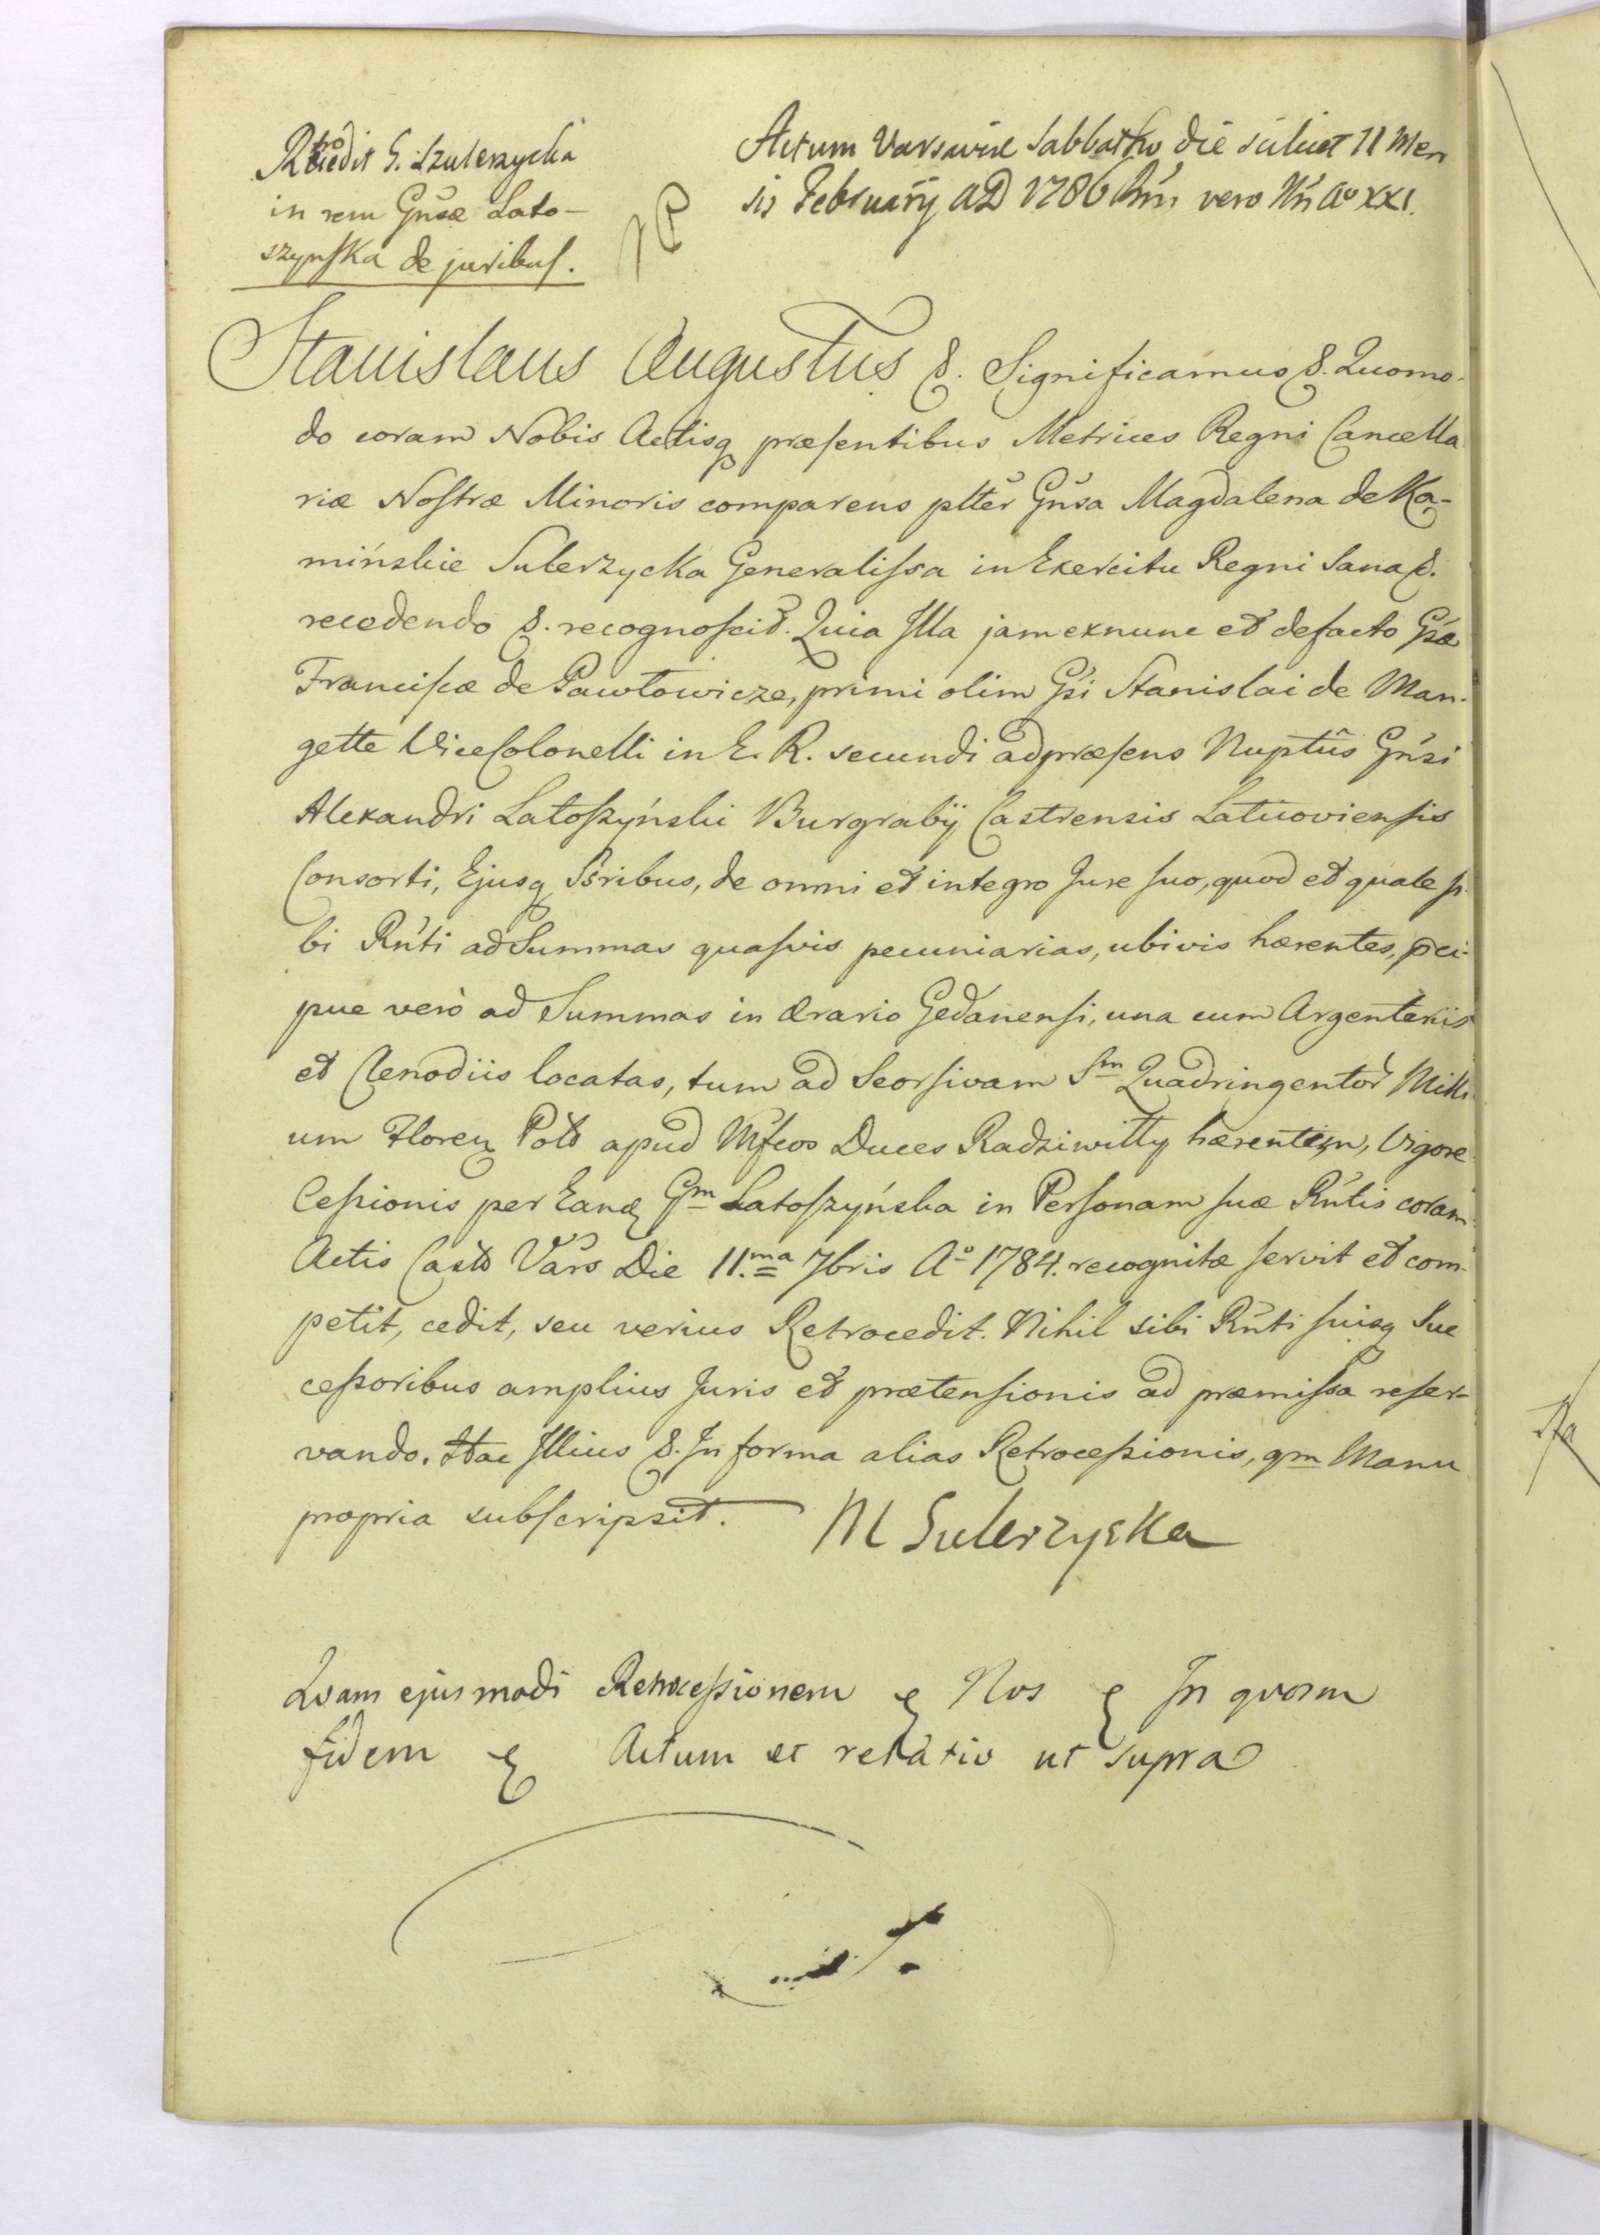 Rtrocedit G. Szulerzycka
in rem Gnsæ Lato-
szynſka de juribuſ.
Actum Varsaviæ Sabbatho die scilicet 11 Men
sis Februarÿ AD 1786 vero Aº XXI.
Stanislaus Augustus &. Significamus &. Quomo-
do coram Nobis Actisq præſentibus Metrices Regni Cancella
riæ Noſtræ Minoris comparens pltter Gnsa Magdalena de Ka-
mińskie Sulerzycka Generaliſsa in Exercitu Regni Sana &.
recedendo &. recognoſcit. Quia Illa jam exnunc et defacto Gsæ
Franciſcæ de Pawłowicze, primi olim Gsi Stanislai de Man-
gette ViceColonelli in E. R. secundi adpræſens Nuptiis Gnsi
Alexandri Latoſzyński Burgrabÿ Castrensis Laticovienſis
Consorti, Ejusq Ssribus, de omni et integro Jure ſuo, quod et quale ſi-
bi Rnti ad Summas quaſvis pecuniarias, ubivis hærentes, pci-
pue verò ad Summas in Ærario Gedanenſi, una cum Argenteriis
et Clenodiis locatas, tum ad Seorſivam Sm Quadringentor Milli
um Floren Polo apud Mfcos Duces Radziwiłły hærentem, Vigore
Ceſsionis per Eand Gm Latoſzyńska in Perſonam ſuæ Rntis coram
Actis Casto Vars Die 11.ma 7bris Aº 1784. recognitæ ſervit et com-
petit, cedit, seu verius Retrocedit. Nihil sibi Rnti ſuisq Suc
ceſsoribus amplius Juris et prætenſionis ad præmiſsa reſer-
vando. Hac Illius &. In forma alias Retroceſsionis, qm Manu
propria subſcripsit. M Sulerzycka
Quam ejusmodi Retroceſsionem & Nos & In quorum
fidem & Actum et relatio ut supra